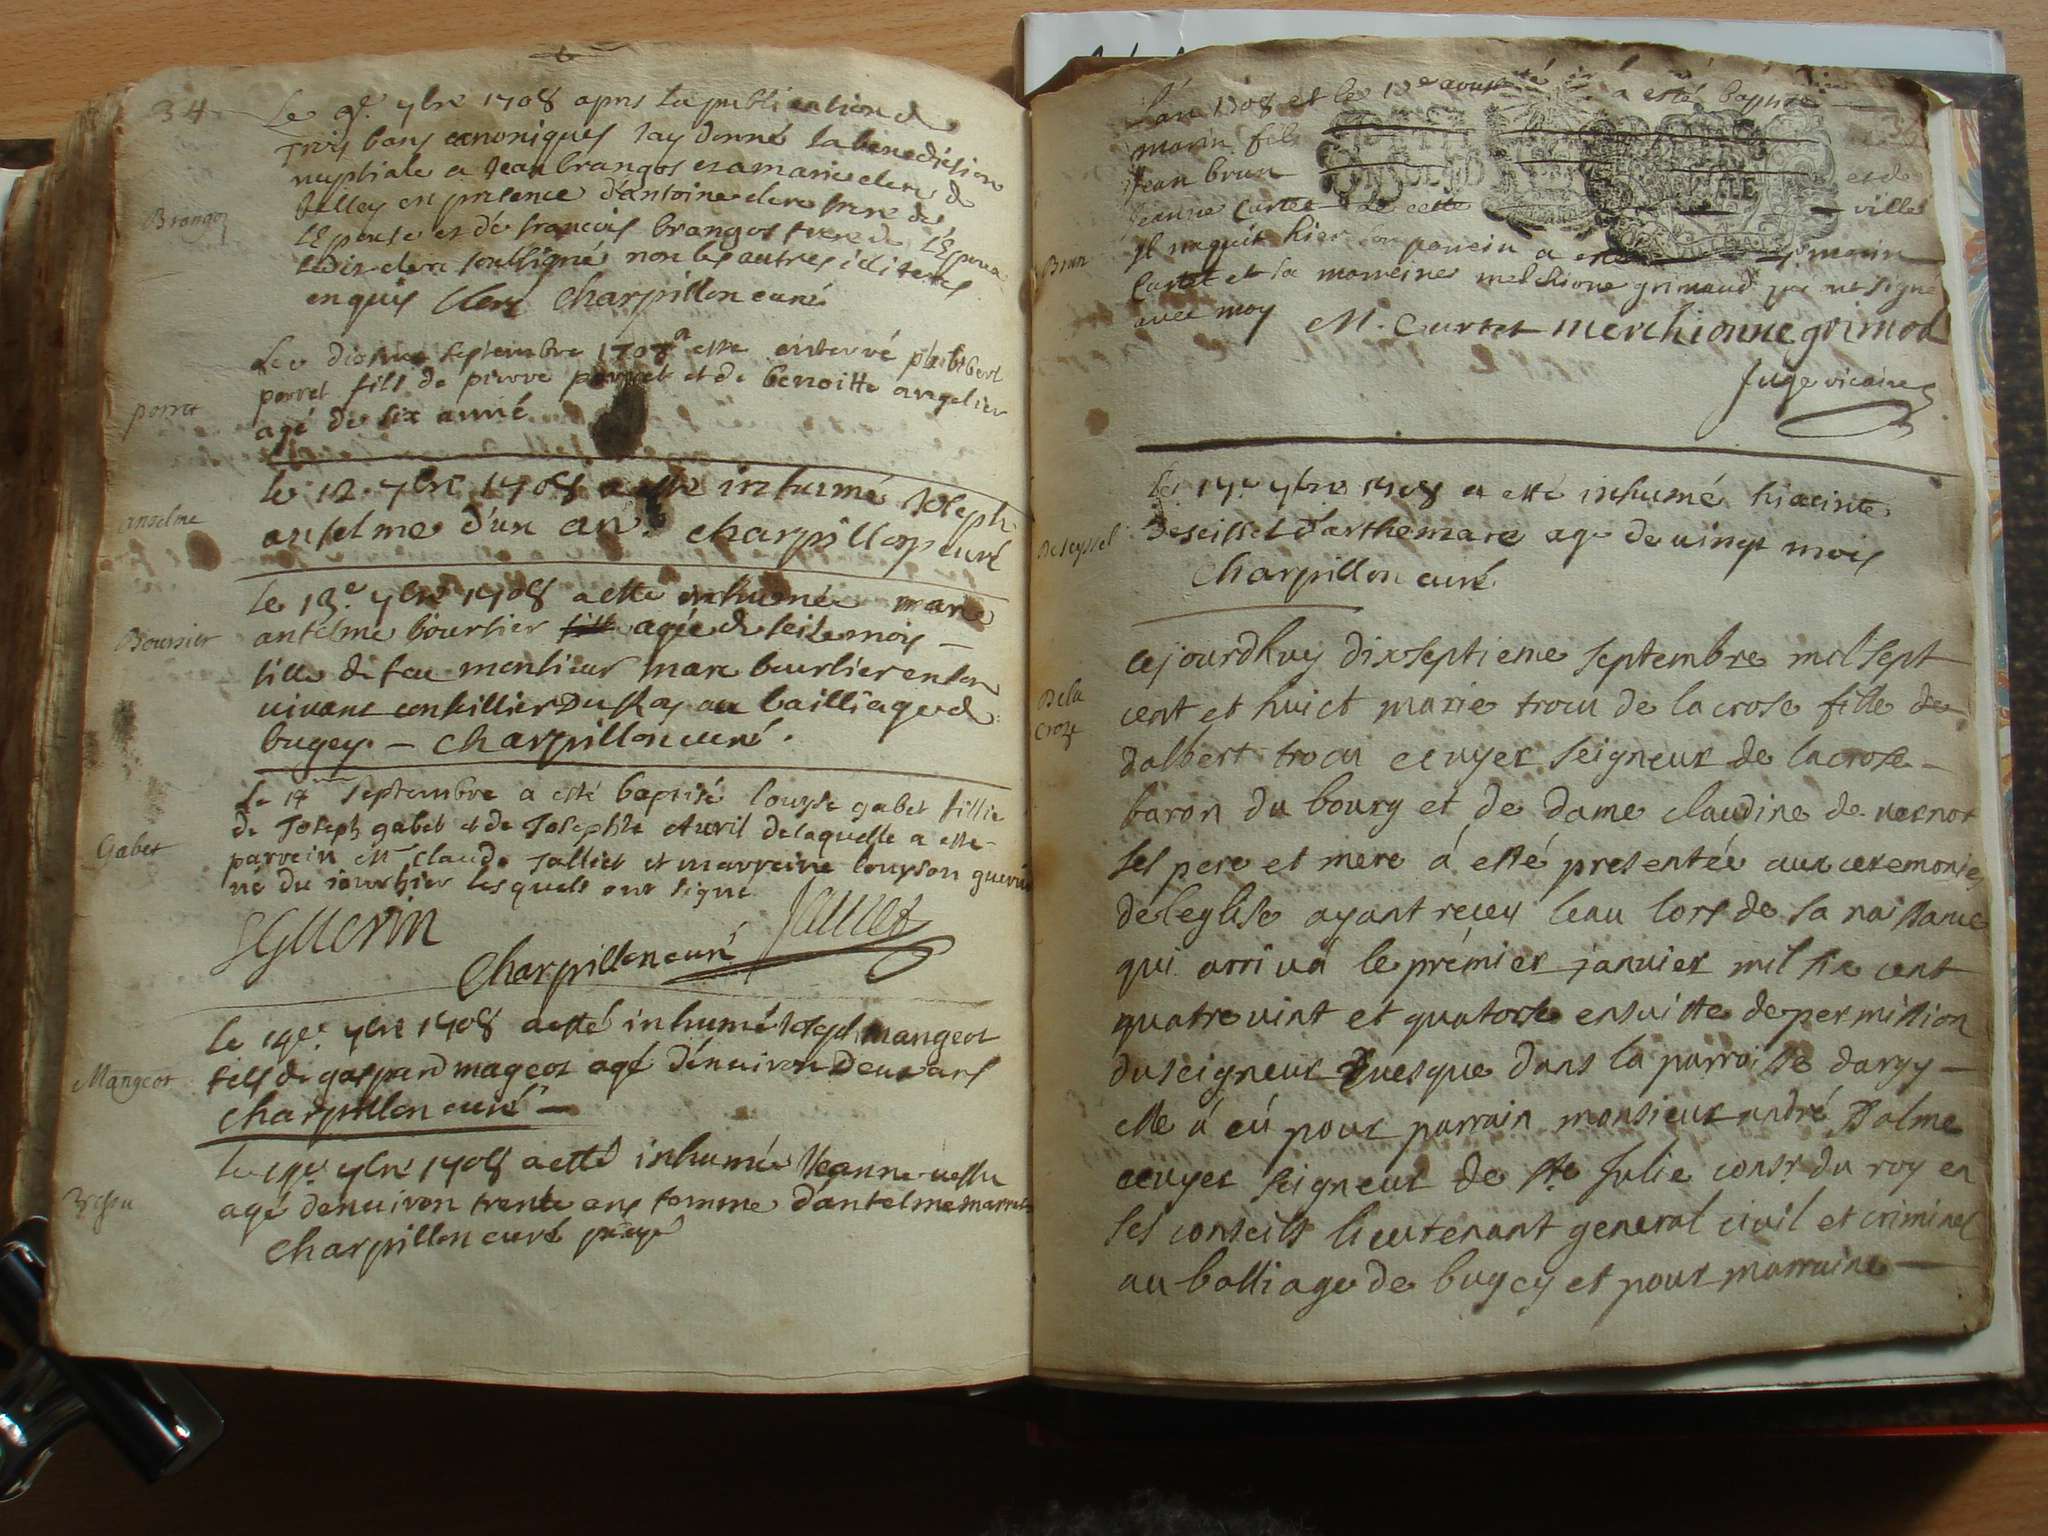 34
Le 9e. 7bre 1708 apres la publication de
trois bans canoniques Jay donné la benediction
nuptiale a Jean brangos et a marie clerc de
billey en presence d'antoine clerc frere de
l'Epouse et de francois brangos frere de l'Epoux
ledit clerc soussigné non les autres illiteres
enquis Clerc Charpillon curé
Brangoz
Le dixhuit septembre 1708 a este enterré philibert
porret fils de pierre porret et de benoitte angelier
agé de six anné
porret
le 12. 7bre 1708 a esté inhumé Joseph
anselme d'un an. Charpillon curé
anselme
le 13.e 7bre 1708 a esté inhumée marie
antelme boursier fille agée de seize mois –
fille de feu monsieur marc boursier en son
vivant conseillier Du Roy au bailliage de
bugey. – Charpillon curé.
Boursier
Le 14 septembre a esté baptisé louyse gabet fillie
de Joseph gabet et de Josephte Avril delaquelle a esté
parrein mr claude Jalliet et marreine louyson guerin
né du jour hier lesquels ont signé
Gabet
SGUerin Jalliet
Charpillon curé
le 14e. 7bre 1708 a esté inhumé Joseph mangeot
fils de gaspard mageot agé d'enuiron Deux ans
Charpillon curé –
Mangeot
le 7bre 1708 a esté inhumée Jeanne
agé denuiron trente ans femme d'antelme
Charpillon curé
L'an 1708 et le 12e aoust a esté baptisé
marin fils
Jean brun et de
Jeanne Curtet de cette ville
Il naquit hier son parrein a esté marin
Curtet et la marreine melchione grimaud qui ont signe
avec moy M. Curtet merchionne grimod
Juge vicaire
Brun
le 17.e 7bre 1708 a esté inhumé hiacinte
Deseissel d'arthemare agé de vingt mois
Charpillon curé
Deseyssel
cejourdhuy dixseptieme septembre mil sept
cent et huict marie trocu de lacrose fille de
dalbert trocu ecuyer seigneur de lacrose –
baron du bourg et de dame claudine de vernot
ses pere et mere á esté presentée aux ceremonies
de leglise ayant receu leau lors de sa naissance
qui arriva le prémier janvier mil six cent
quatre vint et quatorse ensuitte de permission
du seigneur Evesque dans la parroisse dargy –
elle á eú pour parrain monsieur andré Balme
ecuyer seigneur de Ste Julie consr. du roy en
ses conseils lieutenant general civil et criminel
au balliage de bugey et pour marraine –
De la
Croze